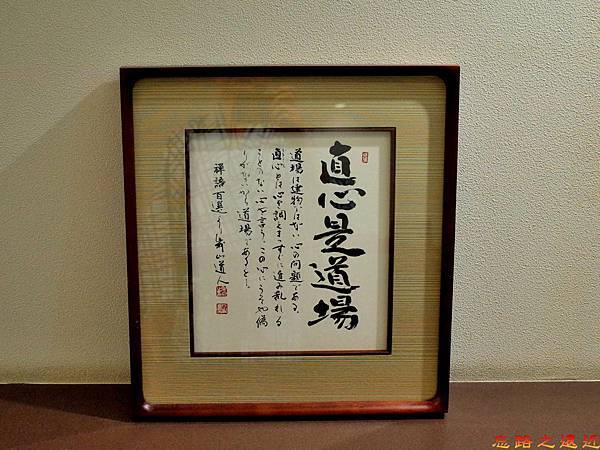 直心是道場
道場は建物ではない心の問題である。
直心とは心を調えまっすぐに進み乱れる
ことのない心を言う、この心にうそや偽
りがないから道場であると。
禅語百選より 山道人
忘路之遠近